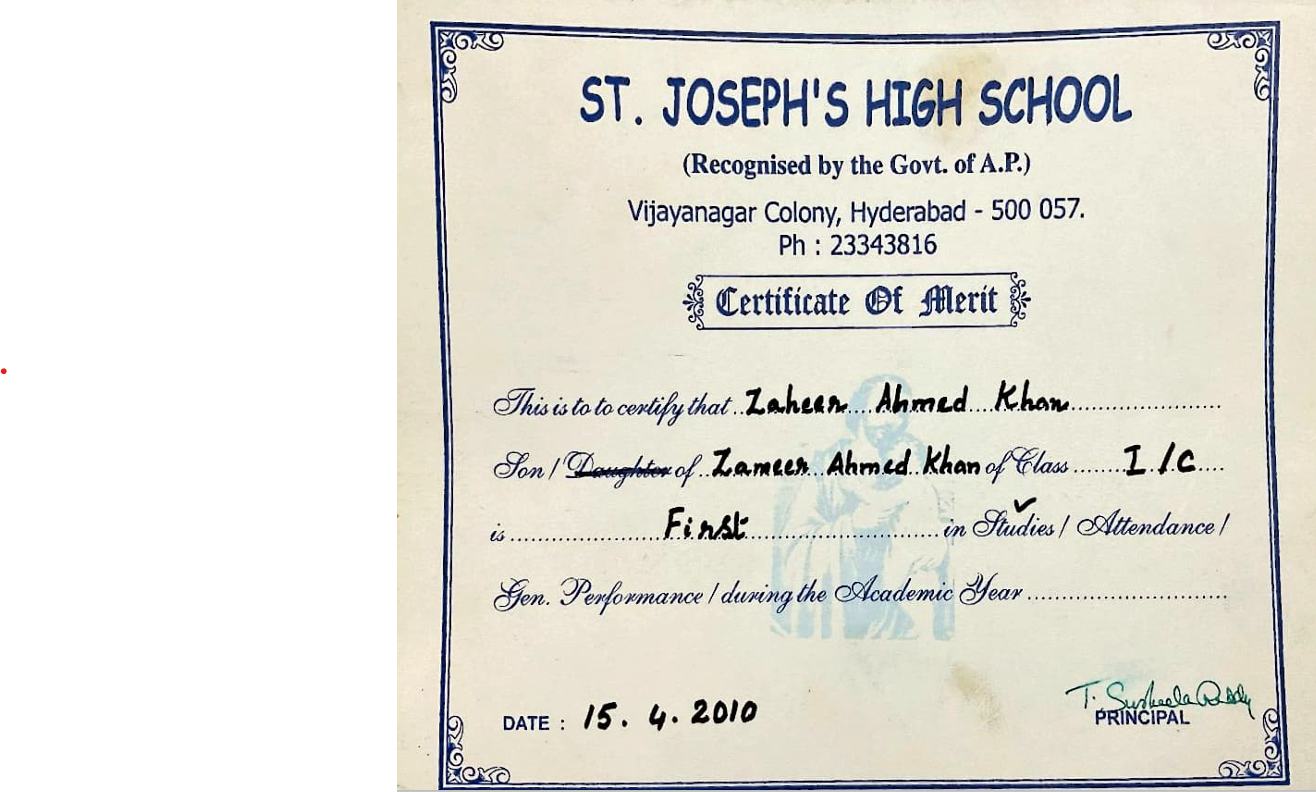 ST. JOSEPH'S HIGH SCHOOL
(Recognised by the Govt. of A.P.)
Vijayanagar Colony, Hyderabad - 500 057.
Ph : 23343816
Certificate Of Merit
This is to to certify that Zaheer Ahmed Khan
Son / Daughter of Zameer Ahmed Khan of Class I/C
is First in Studies / Attendance /
Gen. Performance / during the Academic Year
T. Susheela Reddy
DATE : 15. 4. 2010 PRINCIPAL